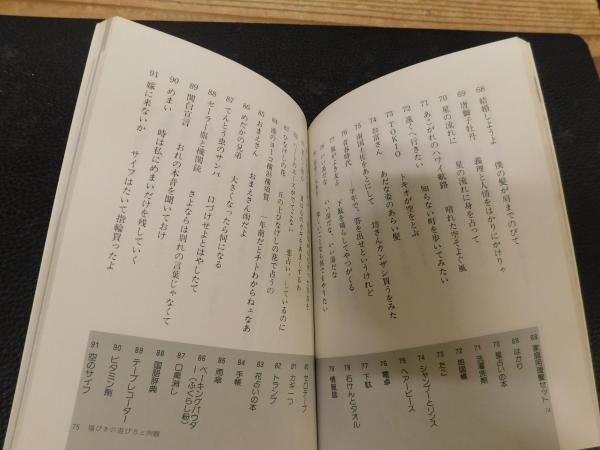 68 結婚しようよ　僕の髪が肩までのびて、
69 唐獅子牡丹　義理と人情をはかりにかけりゃ
70 星の流れに　星の流れに身を占って
71 あこがれのハワイ航路　晴れた空そよぐ風
72 遠くへ行きたい　知らない町を歩いてみたい
73 TOKIO　トキオが空をとぶ
74 お富さん　あだな姿のあらい髪
75 南国土佐をあとにして　坊さんカンザシ買うをみた
76 青春時代　半年で、答を出せというけれど
77 下駄を鳴らしてやつがくる
78 いい湯だな　いい湯だな、いい湯だな
82 ひなげしの花　丘の上ひなげしの花で占うの
84 港のヨーコ横浜横須賀　一年前だとチトわからねェなあ
85 おまえさん　おまえさん雨だよ
86 めだかの兄弟　大きくなったら何になる
87 てんとう虫のサンバ　口づけせよとはやしたて
88 セーラー服と機関銃　さよならは別れの言葉じゃなくて
89 関白宣言　おれの本音を聞いておけ
90 めまい　時は私にめまいだけを残していく
91 嫁に来ないか　サイフはたいて指輪買ったよ
68 家庭用理髪セット
69 はかり
70 星占いの本
71 洗濯洗剤
72 地図帳
73 たこ
74 シャンプーとリンス
75 ヘアーピース
76 電卓
77 下駄
78 石けんとタオル
79 情報誌
74
80 セロテープ
81 カギ一つ
82 トランプ
83 花占いの本
84 手帳
85 雨傘
86 ベーキングパウダー（ふくらし粉）
87 口臭消し
88 国語辞典
89 テープレコーダー
90 ビタミン剤
91 空のサイフ
75 福びきの遊び方と例題